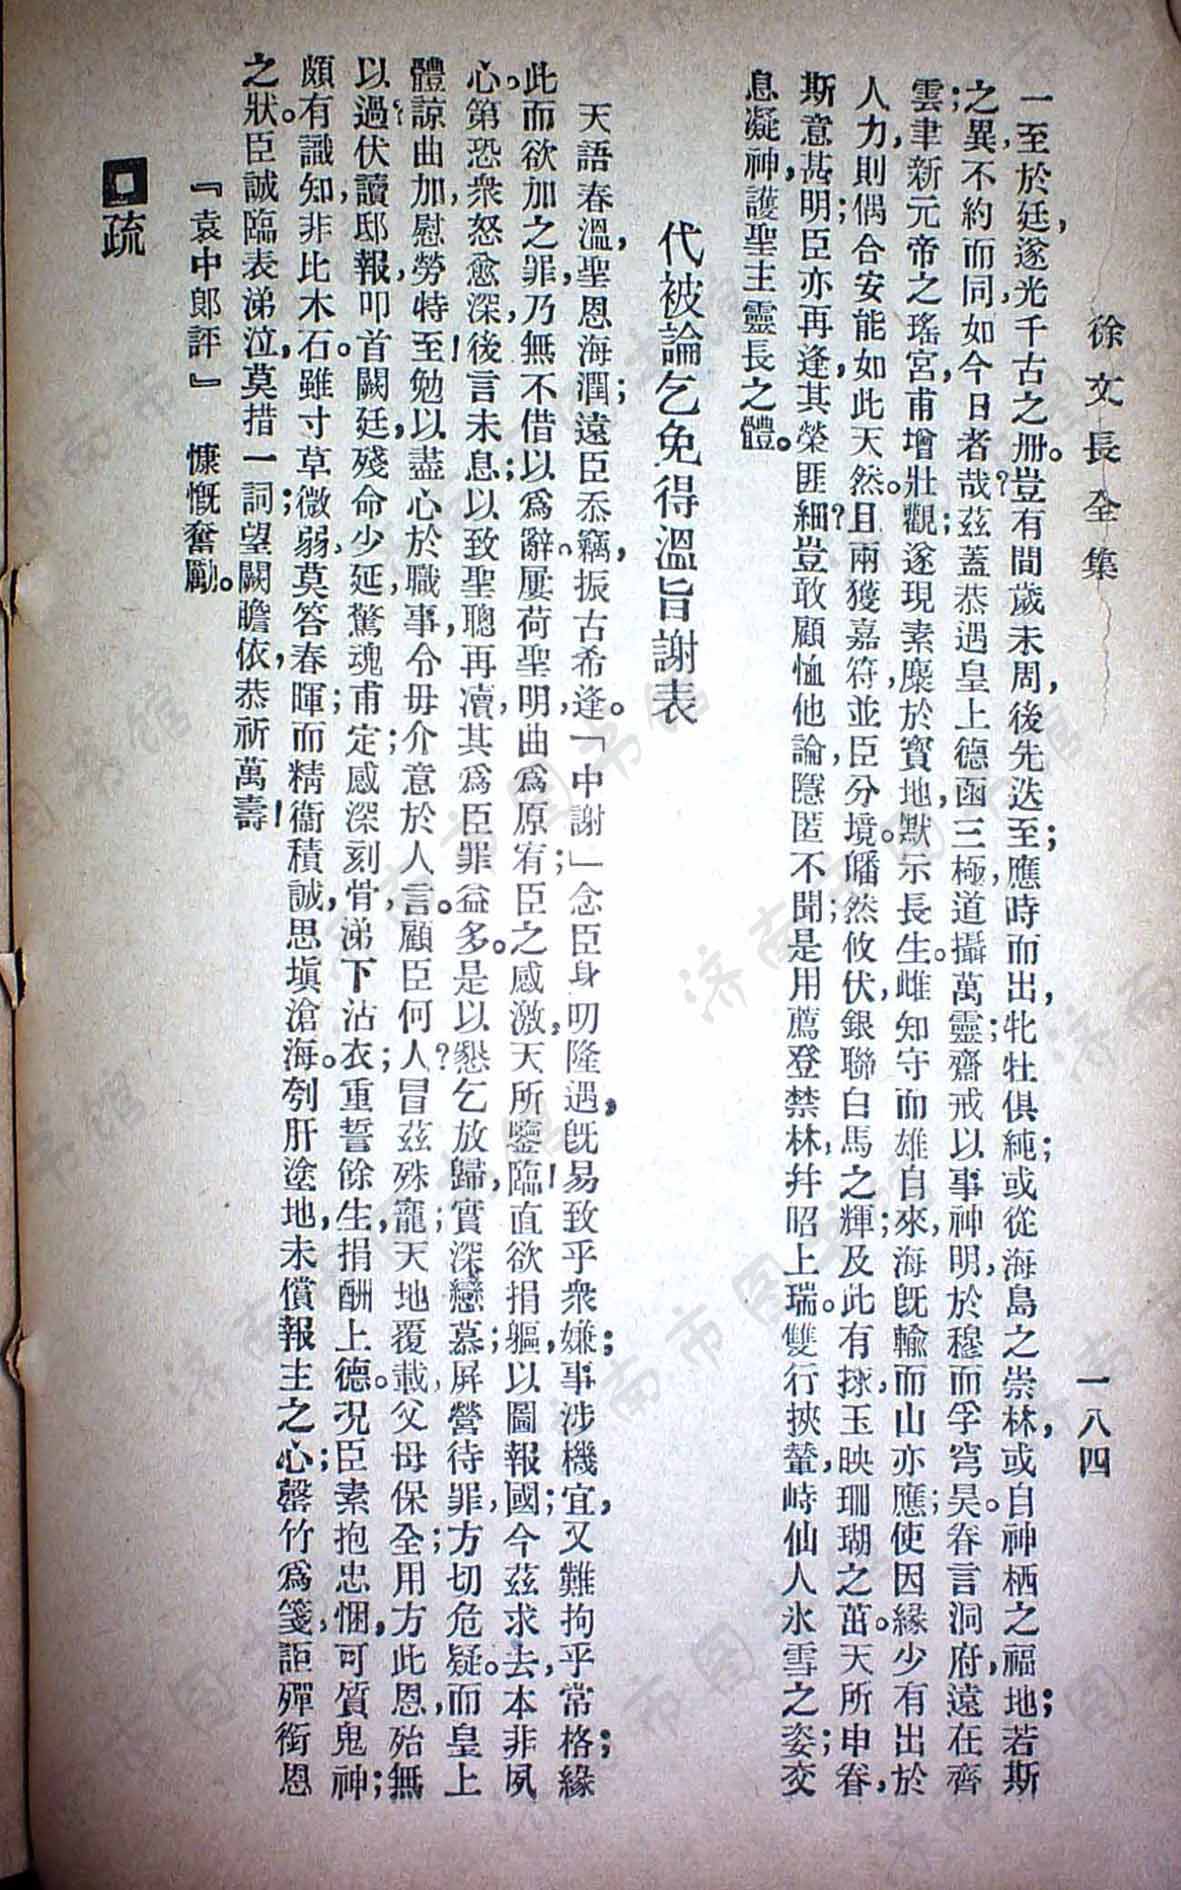 徐文長全集
一八四
一至於廷,遂光千古之册。豈有間歲未周,後先迭至;應時而出,牝牡俱純;或從海島之崇林,或自神栖之福地;若斯
之異,不約而同,如今日者哉?茲蓋恭遇皇上德函三極,道攝萬靈;齋戒以事神明,於穆而孚穹昊。眷言洞府,遠在齊
雲;聿新元帝之瑤宮,甫增壯觀;遂現素麋於寶地,默示長生。雌知守而雄自來,海旣輸而山亦應;使因緣少有出於
人力,則偶合安能如此天然。且兩獲嘉符,並臣分境。皤然攸伏,銀聯白馬之輝;及此有捄,玉映珊瑚之茁。天所申眷,
斯意甚明;臣亦再逢,其榮匪細?豈敢顧恤他論,隱匿不聞;是用薦登禁林,幷昭上瑞。雙行挾輦,峙仙人氷雪之姿;交
息凝神,護聖主靈長之體。
代被論乞免得溫旨謝表
天語春溫,聖恩海潤;遠臣忝竊,振古希逢。「中謝」念臣身叨隆遇,旣易致乎衆嫌;事涉機宜,又難拘乎常格;緣
此而欲加之罪,乃無不借以爲辭。屢荷聖明,曲爲原宥;臣之感激,天所鑒臨!直欲捐軀,以圖報國;今茲求去,本非夙
心。第恐衆怒愈深,後言未息,以致聖聰再凟,其爲臣罪益多。是以懇乞放歸,實深戀慕;屏營待罪,方切危疑。而皇上
體諒曲加,慰勞特至!勉以盡心於職事,令毋介意於人言,顧臣何人?冒茲殊寵;天地覆載,父母保全;用方此恩,殆無
以過?伏讀邸報,叩首闕廷,殘命少延,驚魂甫定;感深刻骨,涕下沾衣;重誓餘生,捐酬上德。况臣素抱忠悃,可質鬼神;
頗有識知,非比木石。雖寸草微弱,莫答春暉;而精衞積誠,思塡滄海。刳肝塗地,未償報主之心;罄竹爲箋,詎殫銜恩
之狀。臣誠臨表涕泣,莫措一詞;望闕瞻依,恭祈萬壽!
『袁中郞評』 慷慨奮勵。
疏